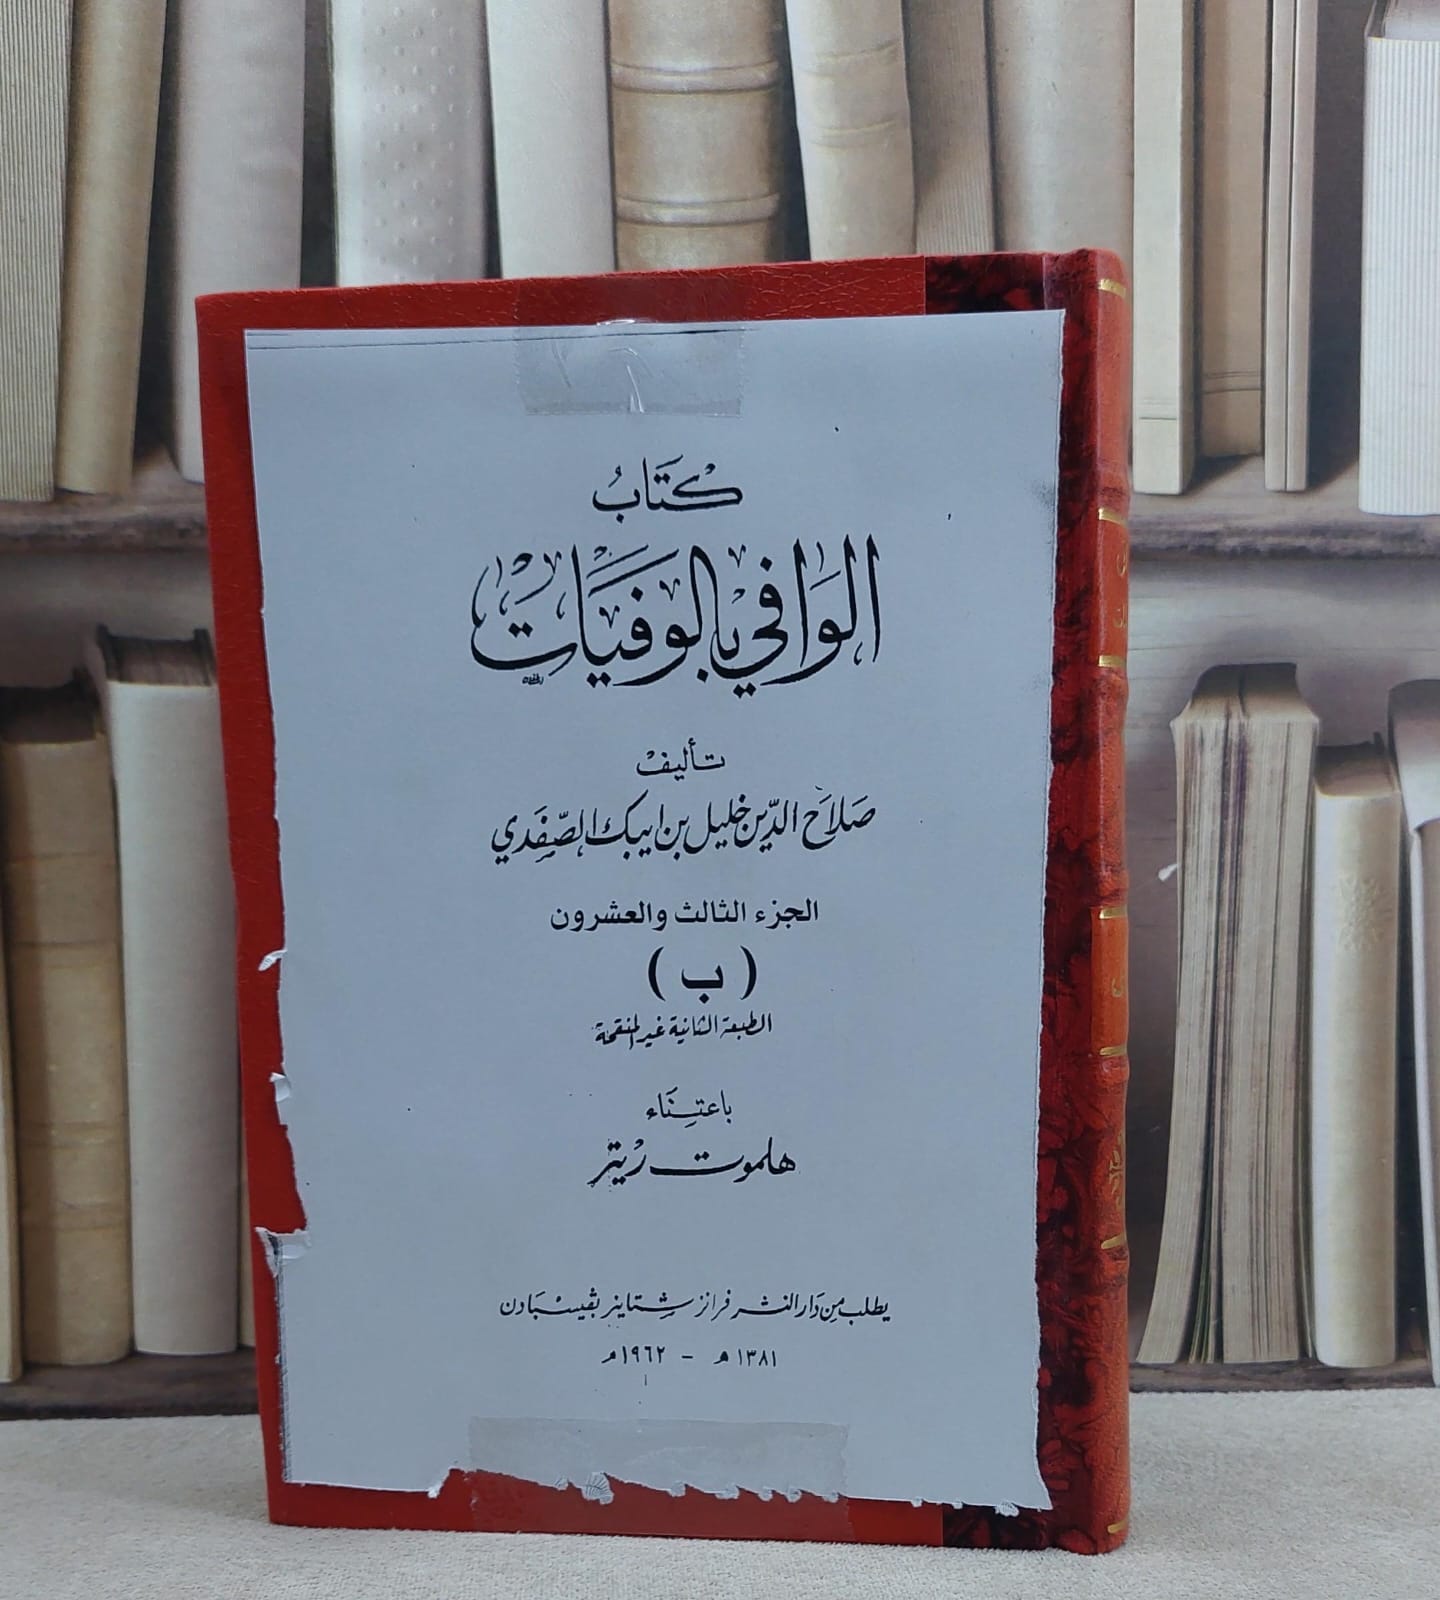 كتَابُ
الوَافي بالوفيَات
تأليفْ
صَلَاح الدّين خليل بن ايبك الصّفَدي
الجزء الثالث والعشرون
( ب )
الطبعة الثانية غير المنقحة
باعتِنَاء
هلموت ريتر
يطلب من دَار النشر فرانز شتاينر بڤيسبَادن
١٣٨١ هـ - ١٩٦٢ م